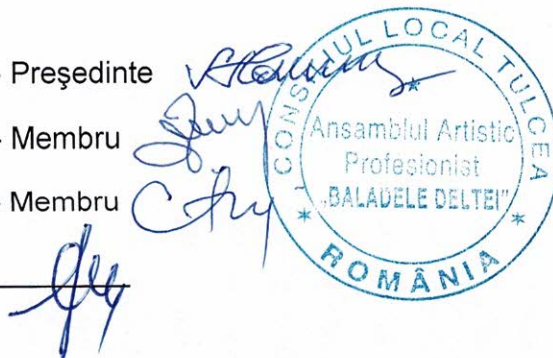 - Președinte
- Membru
- Membru
CONSILIUL LOCAL TULCEA
Ansamblul Artistic
Profesionist
„BALADELE DELTEI”
* ROMÂNIA *